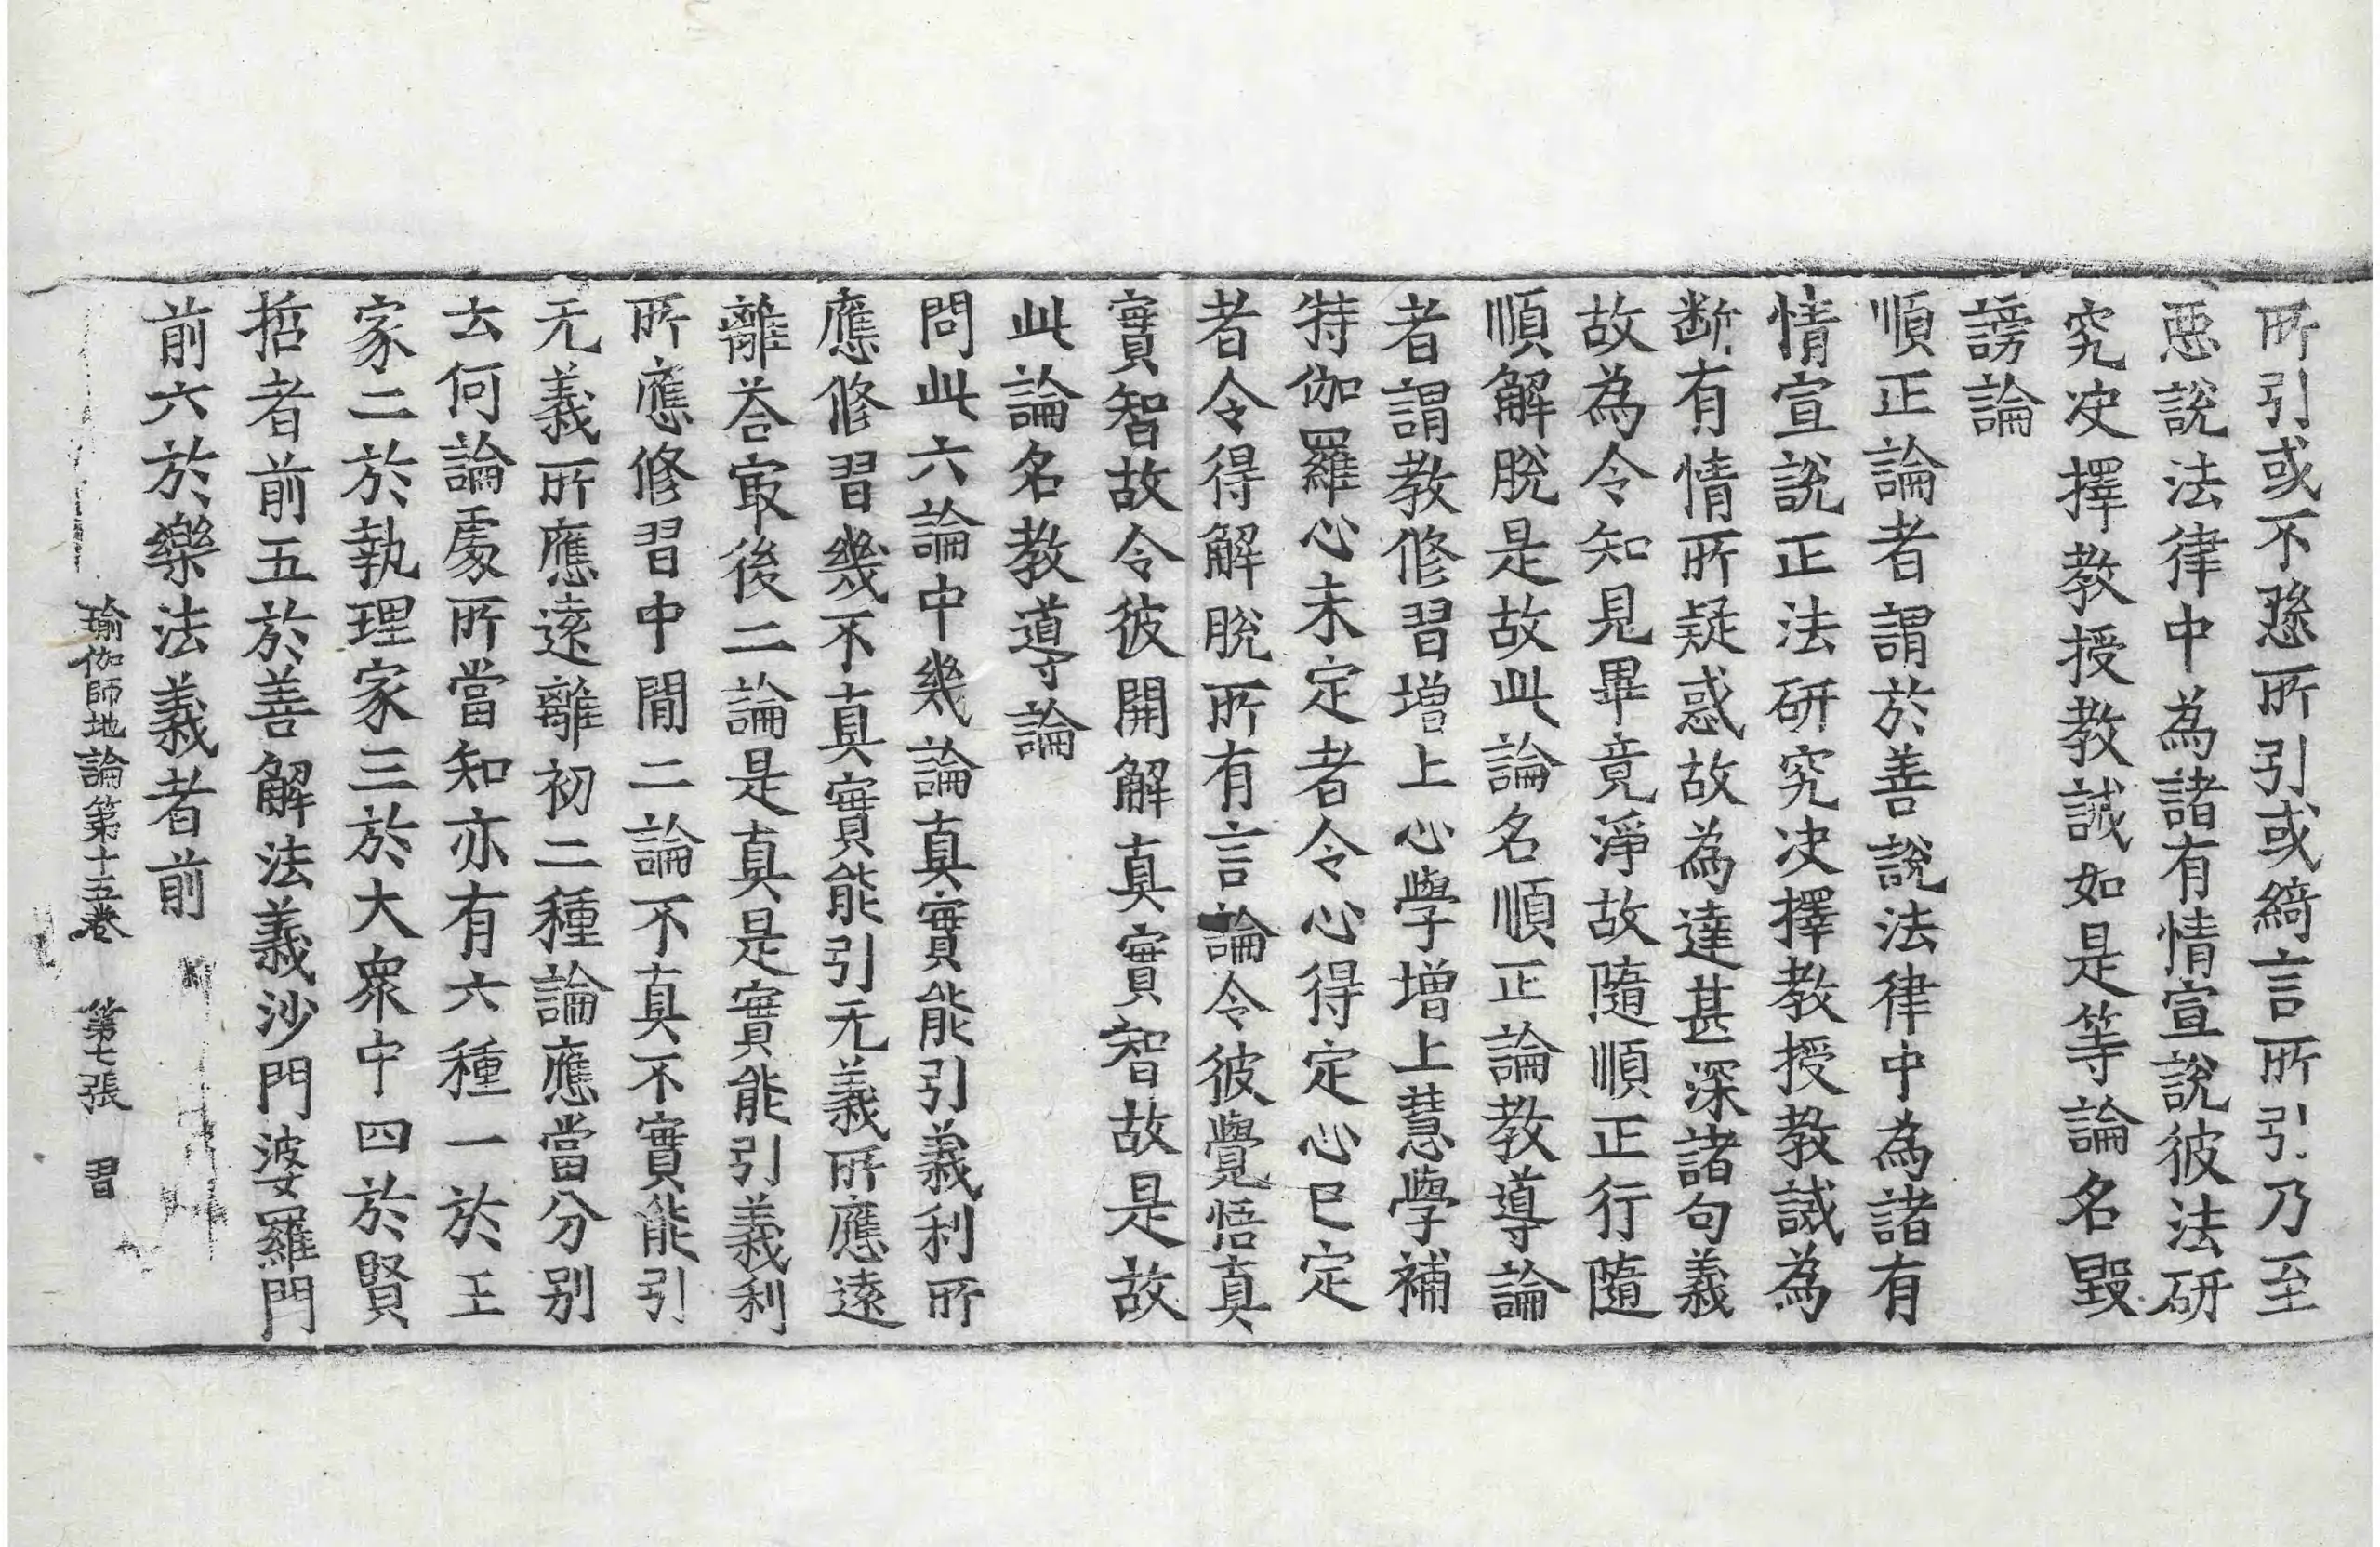 所引或不愻所引或綺言所引乃至
惡說法律中為諸有情宣說彼法研
究决擇教授教誡如是等論名毀
謗論
順正論者謂於善說法律中為諸有
情宣說正法研究决擇教授教誡為
断有情所疑惑故為達甚深諸句義
故為令知見畢竟淨故隨順正行隨
順解脫是故此論名順正論教導論
者謂教修習增上心學增上慧學補
特伽羅心未定者令心得定心已定
者令得解脫所有言論令彼覺悟真
實智故令彼開解真實智故是故
此論名教導論
問此六論中幾論真實能引義利所
應修習幾不真實能引无義所應遠
離荅㝡後二論是真是實能引義利
所應修習中間二論不真不實能引
无義所應遠離初二種論應當分别
云何論處所當知亦有六種一於王
家二於執理家三於大衆中四於賢
哲者前五於善解法義沙門婆羅門
前六於樂法義者前
瑜伽師地論第十五卷 第七張 習